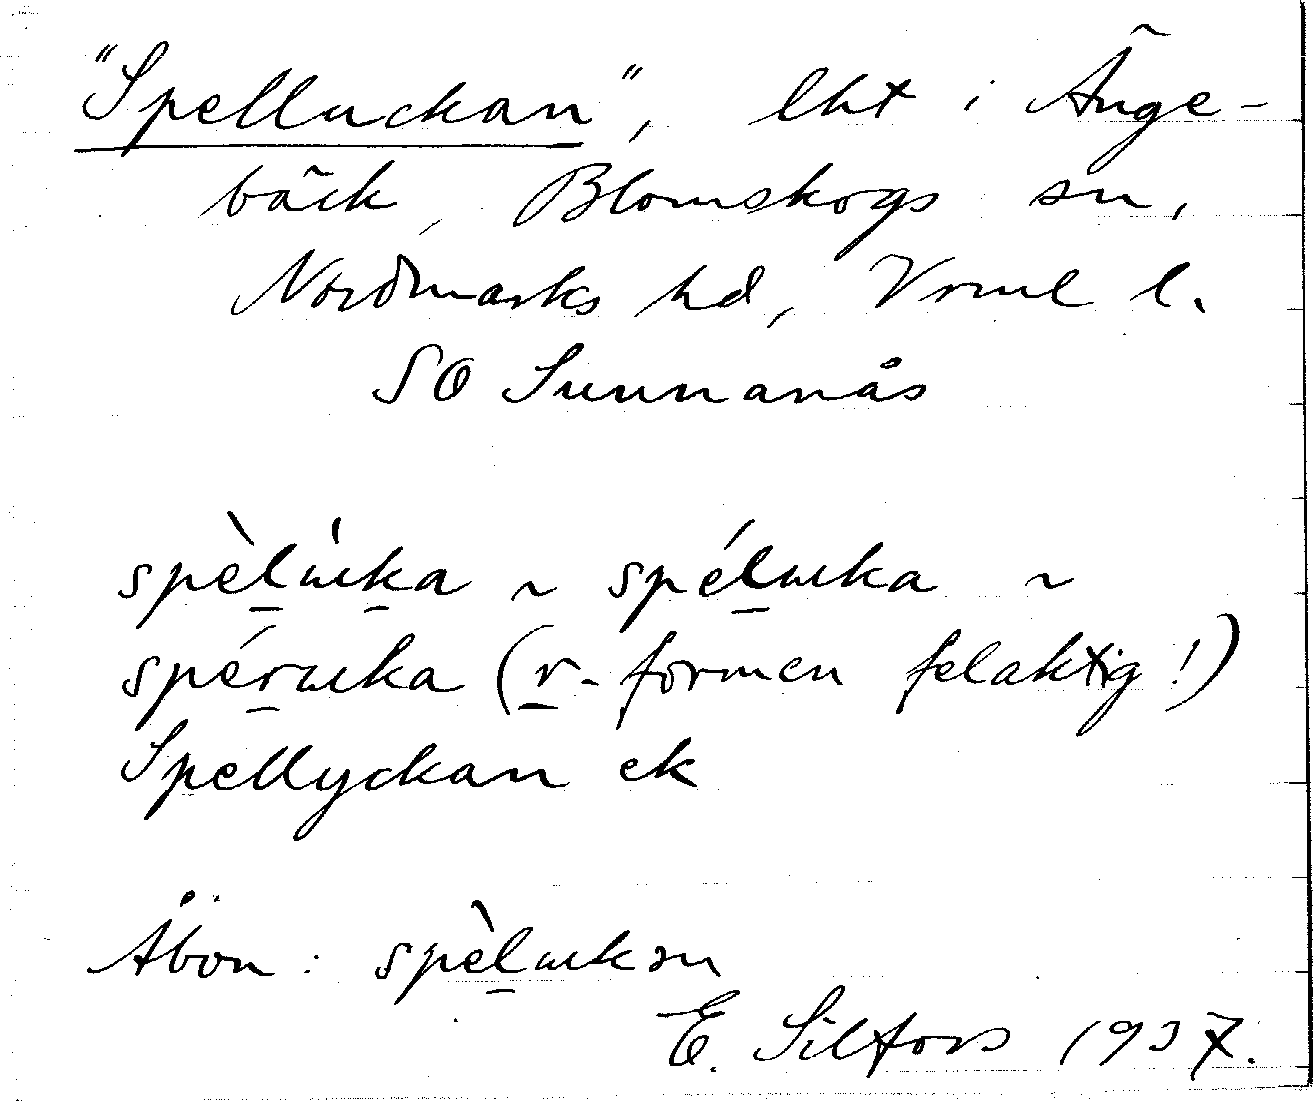 "Spelluckan", lht i Änge-
bäck, Blomskogs sn,
Nordmarks hd, Vrml l.
SO Sunnanås
spèlùka ~ spéluka ~
spéruka (r-formen felaktig!)
Spellyckan ek
Åbon: spèlukɔn
E. Silfors 1937.